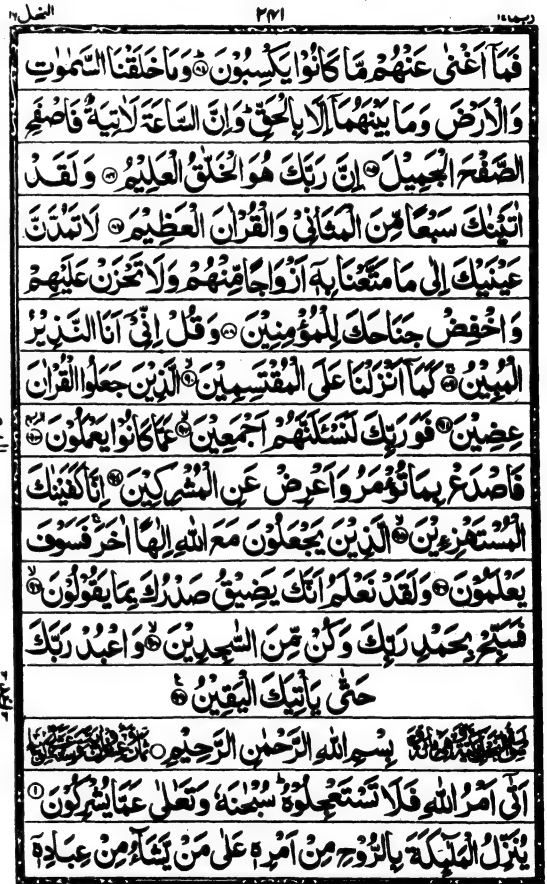 ربما ١٤ ٢٤١ النحل ١٦
فَمَآ اَغْنٰى عَنْهُمْ مَّا كَانُوْا يَكْسِبُوْنَ ﴿٨٤﴾ وَمَا خَلَقْنَا السَّمٰوٰتِ
وَالْاَرْضَ وَمَا بَيْنَهُمَآ اِلَّا بِالْحَقِّ ؕ وَاِنَّ السَّاعَةَ لَاٰتِيَةٌ فَاصْفَحِ
الصَّفْحَ الْجَمِيْلَ ﴿٨٥﴾ اِنَّ رَبَّكَ هُوَ الْخَلّٰقُ الْعَلِيْمُ ﴿٨٦﴾ وَلَقَدْ
اٰتَيْنٰكَ سَبْعًا مِّنَ الْمَثَانِيْ وَالْقُرْاٰنَ الْعَظِيْمَ ﴿٨٧﴾ لَا تَمُدَّنَّ
عَيْنَيْكَ اِلٰى مَا مَتَّعْنَا بِهٖٓ اَزْوَاجًا مِّنْهُمْ وَلَا تَحْزَنْ عَلَيْهِمْ
وَاخْفِضْ جَنَاحَكَ لِلْمُؤْمِنِيْنَ ﴿٨٨﴾ وَقُلْ اِنِّيْٓ اَنَا النَّذِيْرُ
الْمُبِيْنُ ﴿٨٩﴾ كَمَآ اَنْزَلْنَا عَلَى الْمُقْتَسِمِيْنَ ﴿٩٠﴾ الَّذِيْنَ جَعَلُوا الْقُرْاٰنَ
عِضِيْنَ ﴿٩١﴾ فَوَرَبِّكَ لَنَسْـَٔلَنَّهُمْ اَجْمَعِيْنَ ﴿٩٢﴾ عَمَّا كَانُوْا يَعْمَلُوْنَ ﴿٩٣﴾
فَاصْدَعْ بِمَا تُؤْمَرُ وَاَعْرِضْ عَنِ الْمُشْرِكِيْنَ ﴿٩٤﴾ اِنَّا كَفَيْنٰكَ
الْمُسْتَهْزِءِيْنَ ﴿٩٥﴾ الَّذِيْنَ يَجْعَلُوْنَ مَعَ اللّٰهِ اِلٰهًا اٰخَرَ ۚ فَسَوْفَ
يَعْلَمُوْنَ ﴿٩٦﴾ وَلَقَدْ نَعْلَمُ اَنَّكَ يَضِيْقُ صَدْرُكَ بِمَا يَقُوْلُوْنَ ﴿٩٧﴾
فَسَبِّحْ بِحَمْدِ رَبِّكَ وَكُنْ مِّنَ السّٰجِدِيْنَ ﴿٩٨﴾ وَاعْبُدْ رَبَّكَ
حَتّٰى يَاْتِيَكَ الْيَقِيْنُ ﴿٩٩﴾
بِسْمِ اللّٰهِ الرَّحْمٰنِ الرَّحِيْمِ ○
اَتٰٓى اَمْرُ اللّٰهِ فَلَا تَسْتَعْجِلُوْهُ ؕ سُبْحٰنَهٗ وَتَعٰلٰى عَمَّا يُشْرِكُوْنَ ﴿١﴾
يُنَزِّلُ الْمَلٰٓئِكَةَ بِالرُّوْحِ مِنْ اَمْرِهٖ عَلٰى مَنْ يَّشَآءُ مِنْ عِبَادِهٖٓ